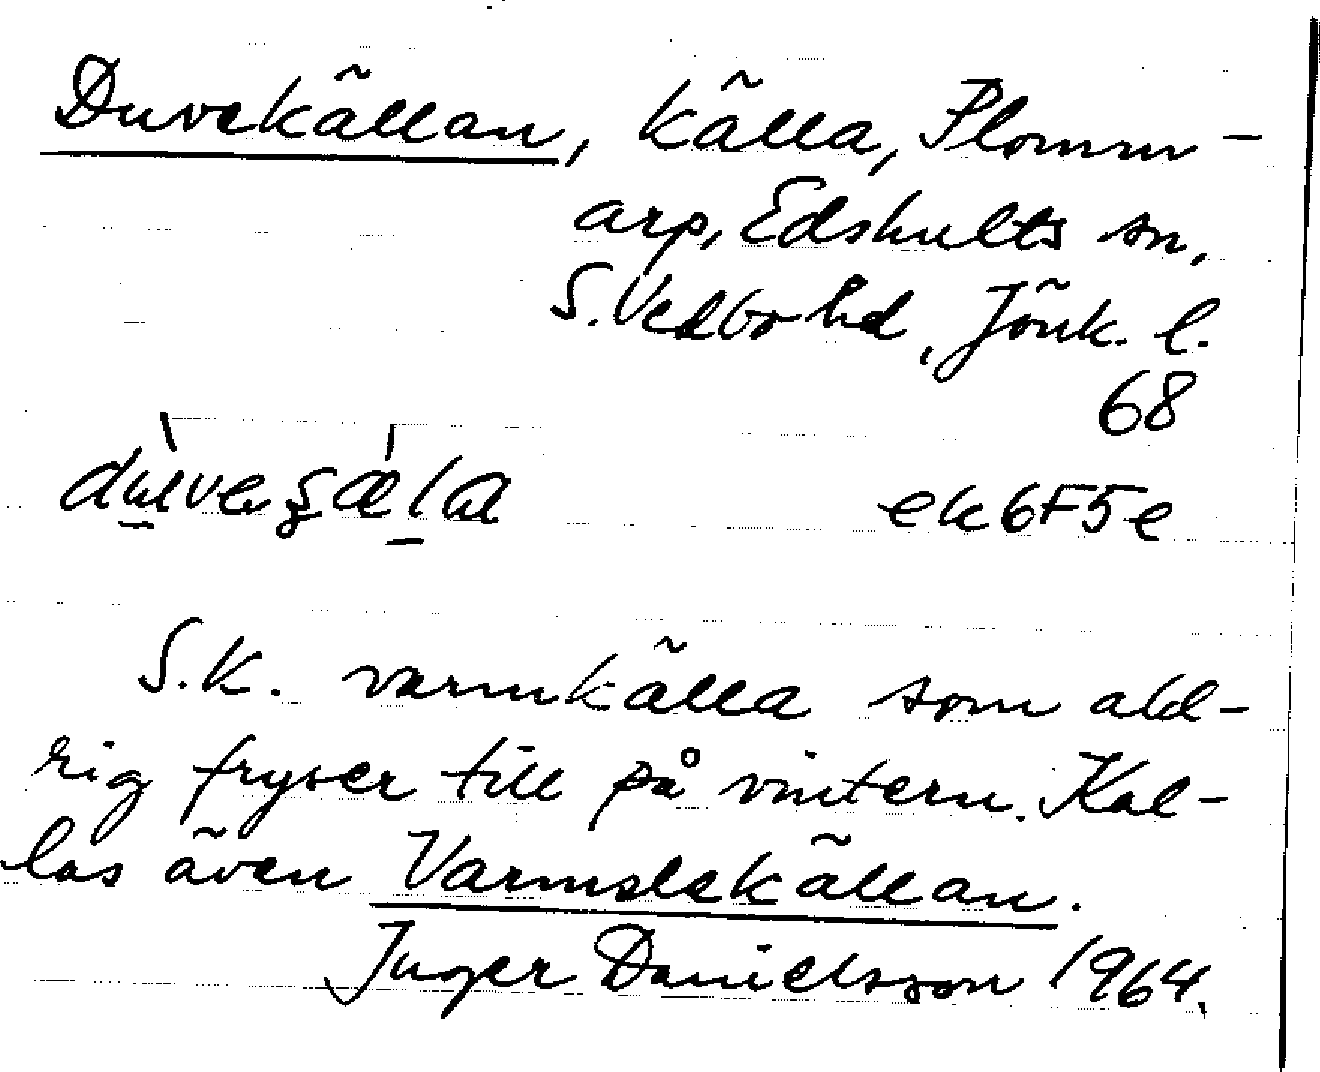 Duvekällan, källa, Plomm-
arp, Edshults sn,
S. Vedbo hd, Jönk. l.
68
ek 6F5e
S.k. varmkälla som ald-
rig fryser till på vintern. Kal-
las även Varmslekällan.
Inger Danielsson 1964.